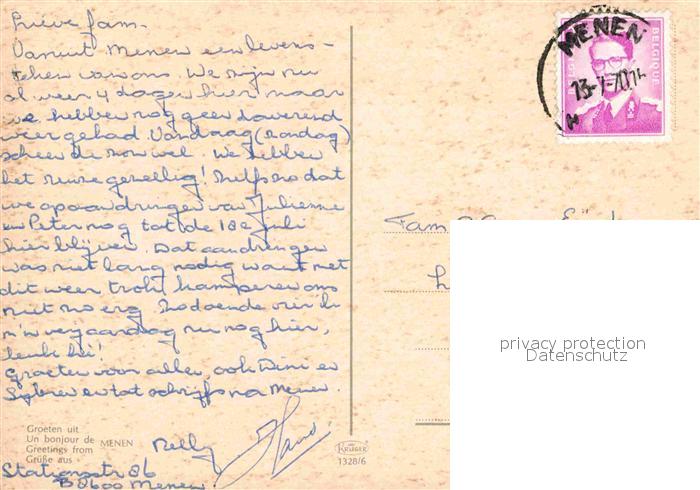 Lieve fam.
Vanuit Menen een levens-
teken van ons. We zijn nu
al weer 4 dagen hier maar
we hebben nog geen daverend
weer gehad. Vandaag (zondag)
scheen de zon wel. We hebben
het reuze gezellig! Zelfs zo dat
we op aandringen van Julienne
en Peter nog tot de 18e juli
hier blijven. Dat aandringen
was niet lang nodig want met
dit weer trok kamperen ons
niet zo erg. Zodoende vier ik
m'n verjaardag nu nog hier,
leuk hè!
Groeten voor allen, ook Dini en
en tot schrijfs na Menen.
Nelly
Stationsstr 86
B8600 Menen.
Groeten uit
Un bonjour de
Greetings from
Grüße aus
MENEN
KRÜGER
1328/6
MENEN
BELGIQUE
Fam
privacy protection
Datenschutz